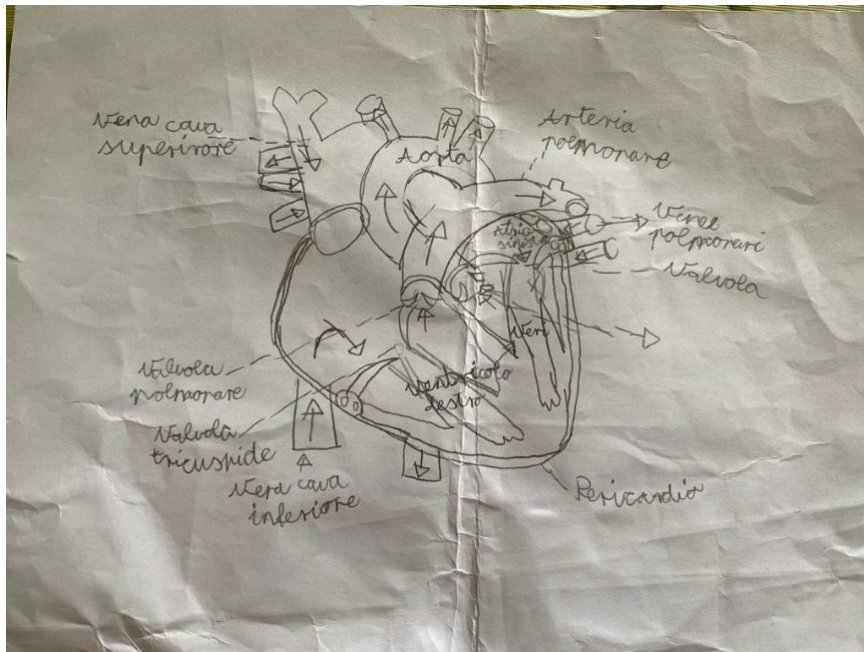 Vena cava
superirore
Aorta
Arteria
polmonare
Atrio
sinis
Vene
polmonari
Valvola
Ven
Valvola
polmonare
Ventricolo
destro
Valvola
tricuspide
Vena cava
inferiore
Pericardio